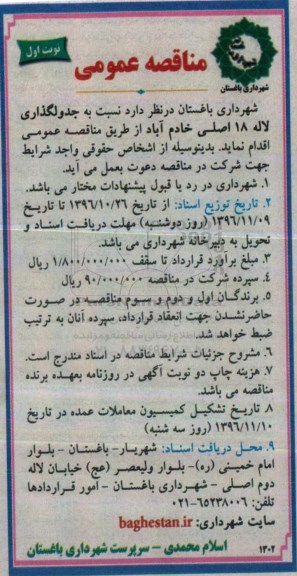 نوبت اول
مناقصه عمومی
شهرداری باغستان
شهرداری باغستان درنظر دارد نسبت به جدولگذاری
لاله ۱۸ اصلی خادم آباد از طریق مناقصه عمومی
اقدام نماید. بدینوسیله از اشخاص حقوقی واجد شرایط
جهت شرکت در مناقصه دعوت بعمل می آید.
۱. شهرداری در رد یا قبول پیشنهادات مختار می باشد.
۲. تاریخ توزیع اسناد: از تاریخ ۱۳۹۶/۱۰/۲۶ تا تاریخ
۱۳۹۶/۱۱/۰۹ (روز دوشنبه) مهلت دریافت اسناد و
تحویل به دبیرخانه شهرداری می باشد.
۳. مبلغ برآورد قرارداد تا سقف ۱/۸۰۰/۰۰۰/۰۰۰ ریال
۴. سپرده شرکت در مناقصه ۹۰/۰۰۰/۰۰۰ ریال
۵. برندگان اول و دوم و سوم مناقصه در صورت
حاضرنشدن جهت انعقاد قرارداد، سپرده آنان به ترتیب
ضبط خواهد شد.
۶. مشروح جزئیات شرایط مناقصه در اسناد مندرج است.
۷. هزینه چاپ دو نوبت آگهی در روزنامه بعهده برنده
مناقصه می باشد.
۸ تاریخ تشکیل کمیسیون معاملات عمده در تاریخ
۱۳۹۶/۱۱/۱۰ (روز سه شنبه)
۹. محل دریافت اسناد: شهریار- باغستان - بلوار
امام خمینی (ره)- بلوار ولیعصر (عج) خیابان لاله
دوم اصلی - شهرداری باغستان - امور قراردادها
تلفن: ۶۵۲۳۸۰۰۶-۰۲۱
سایت شهرداری: baghestan.ir
اسلام محمدی – سرپرست شهرداری باغستان
۱۳۰۲